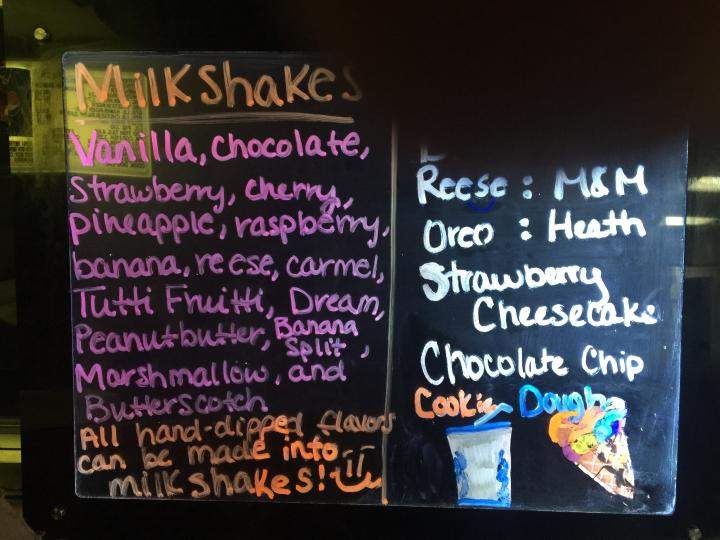 Milkshakes
Vanilla, chocolate,
Strawberry, cherry,
pineapple, raspberry,
banana, reese, carmel,
Tutti Fruitti, Dream,
Peanutbutter, Banana
Split,
Marshmallow, and
Butterscotch
All hand-dipped flavors
can be made into
milkshakes!
Reese : M&M
Oreo : Heath
Strawberry
Cheesecake
Chocolate Chip
Cookie Dough